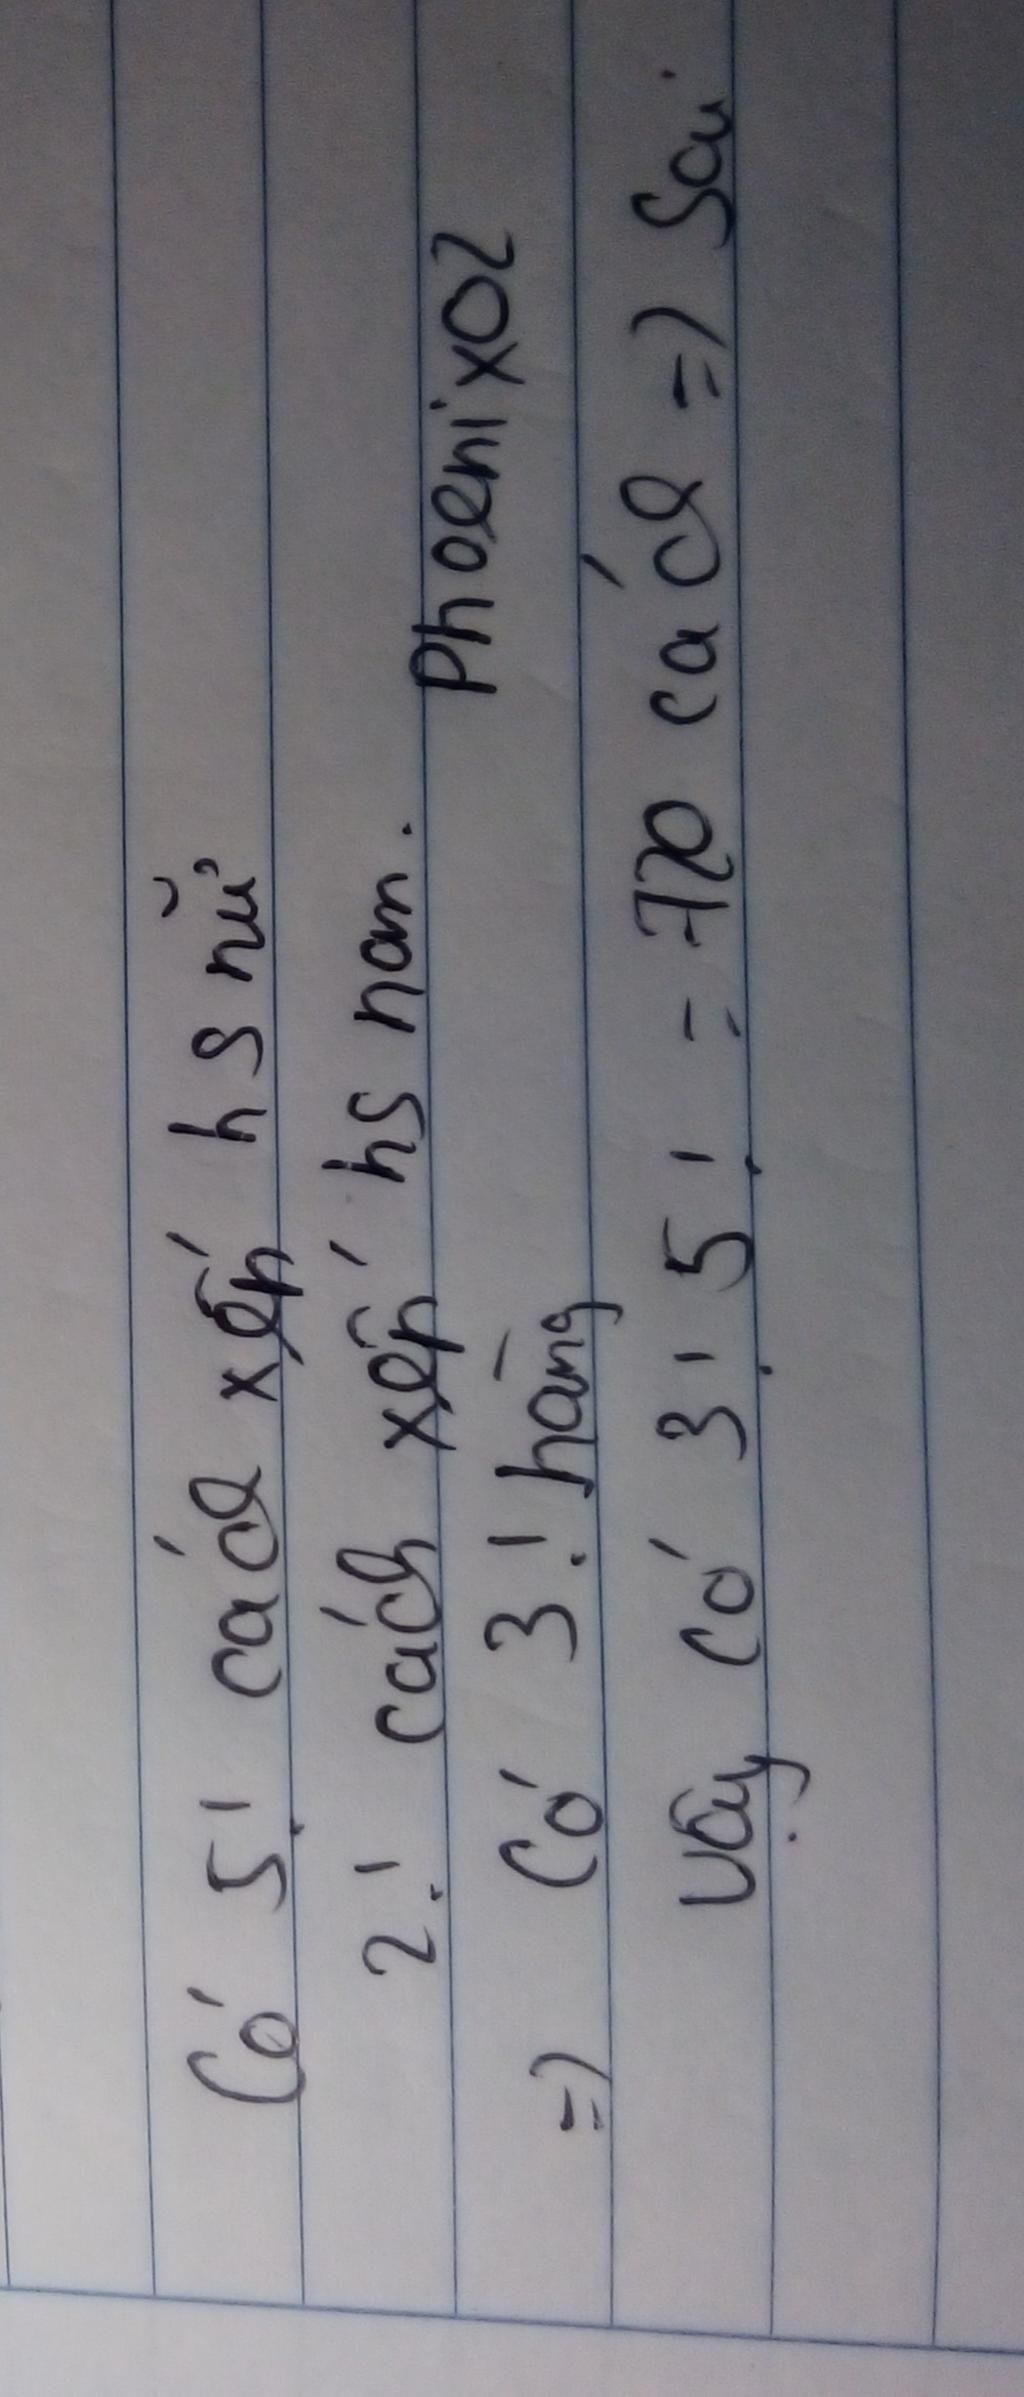 Có 5! cách xếp hs nữ
2! cách xếp hs nam.
Phoenix02
=) Có 3! hàng
Vậy có 3! 5! = 720 cách =) Sai.